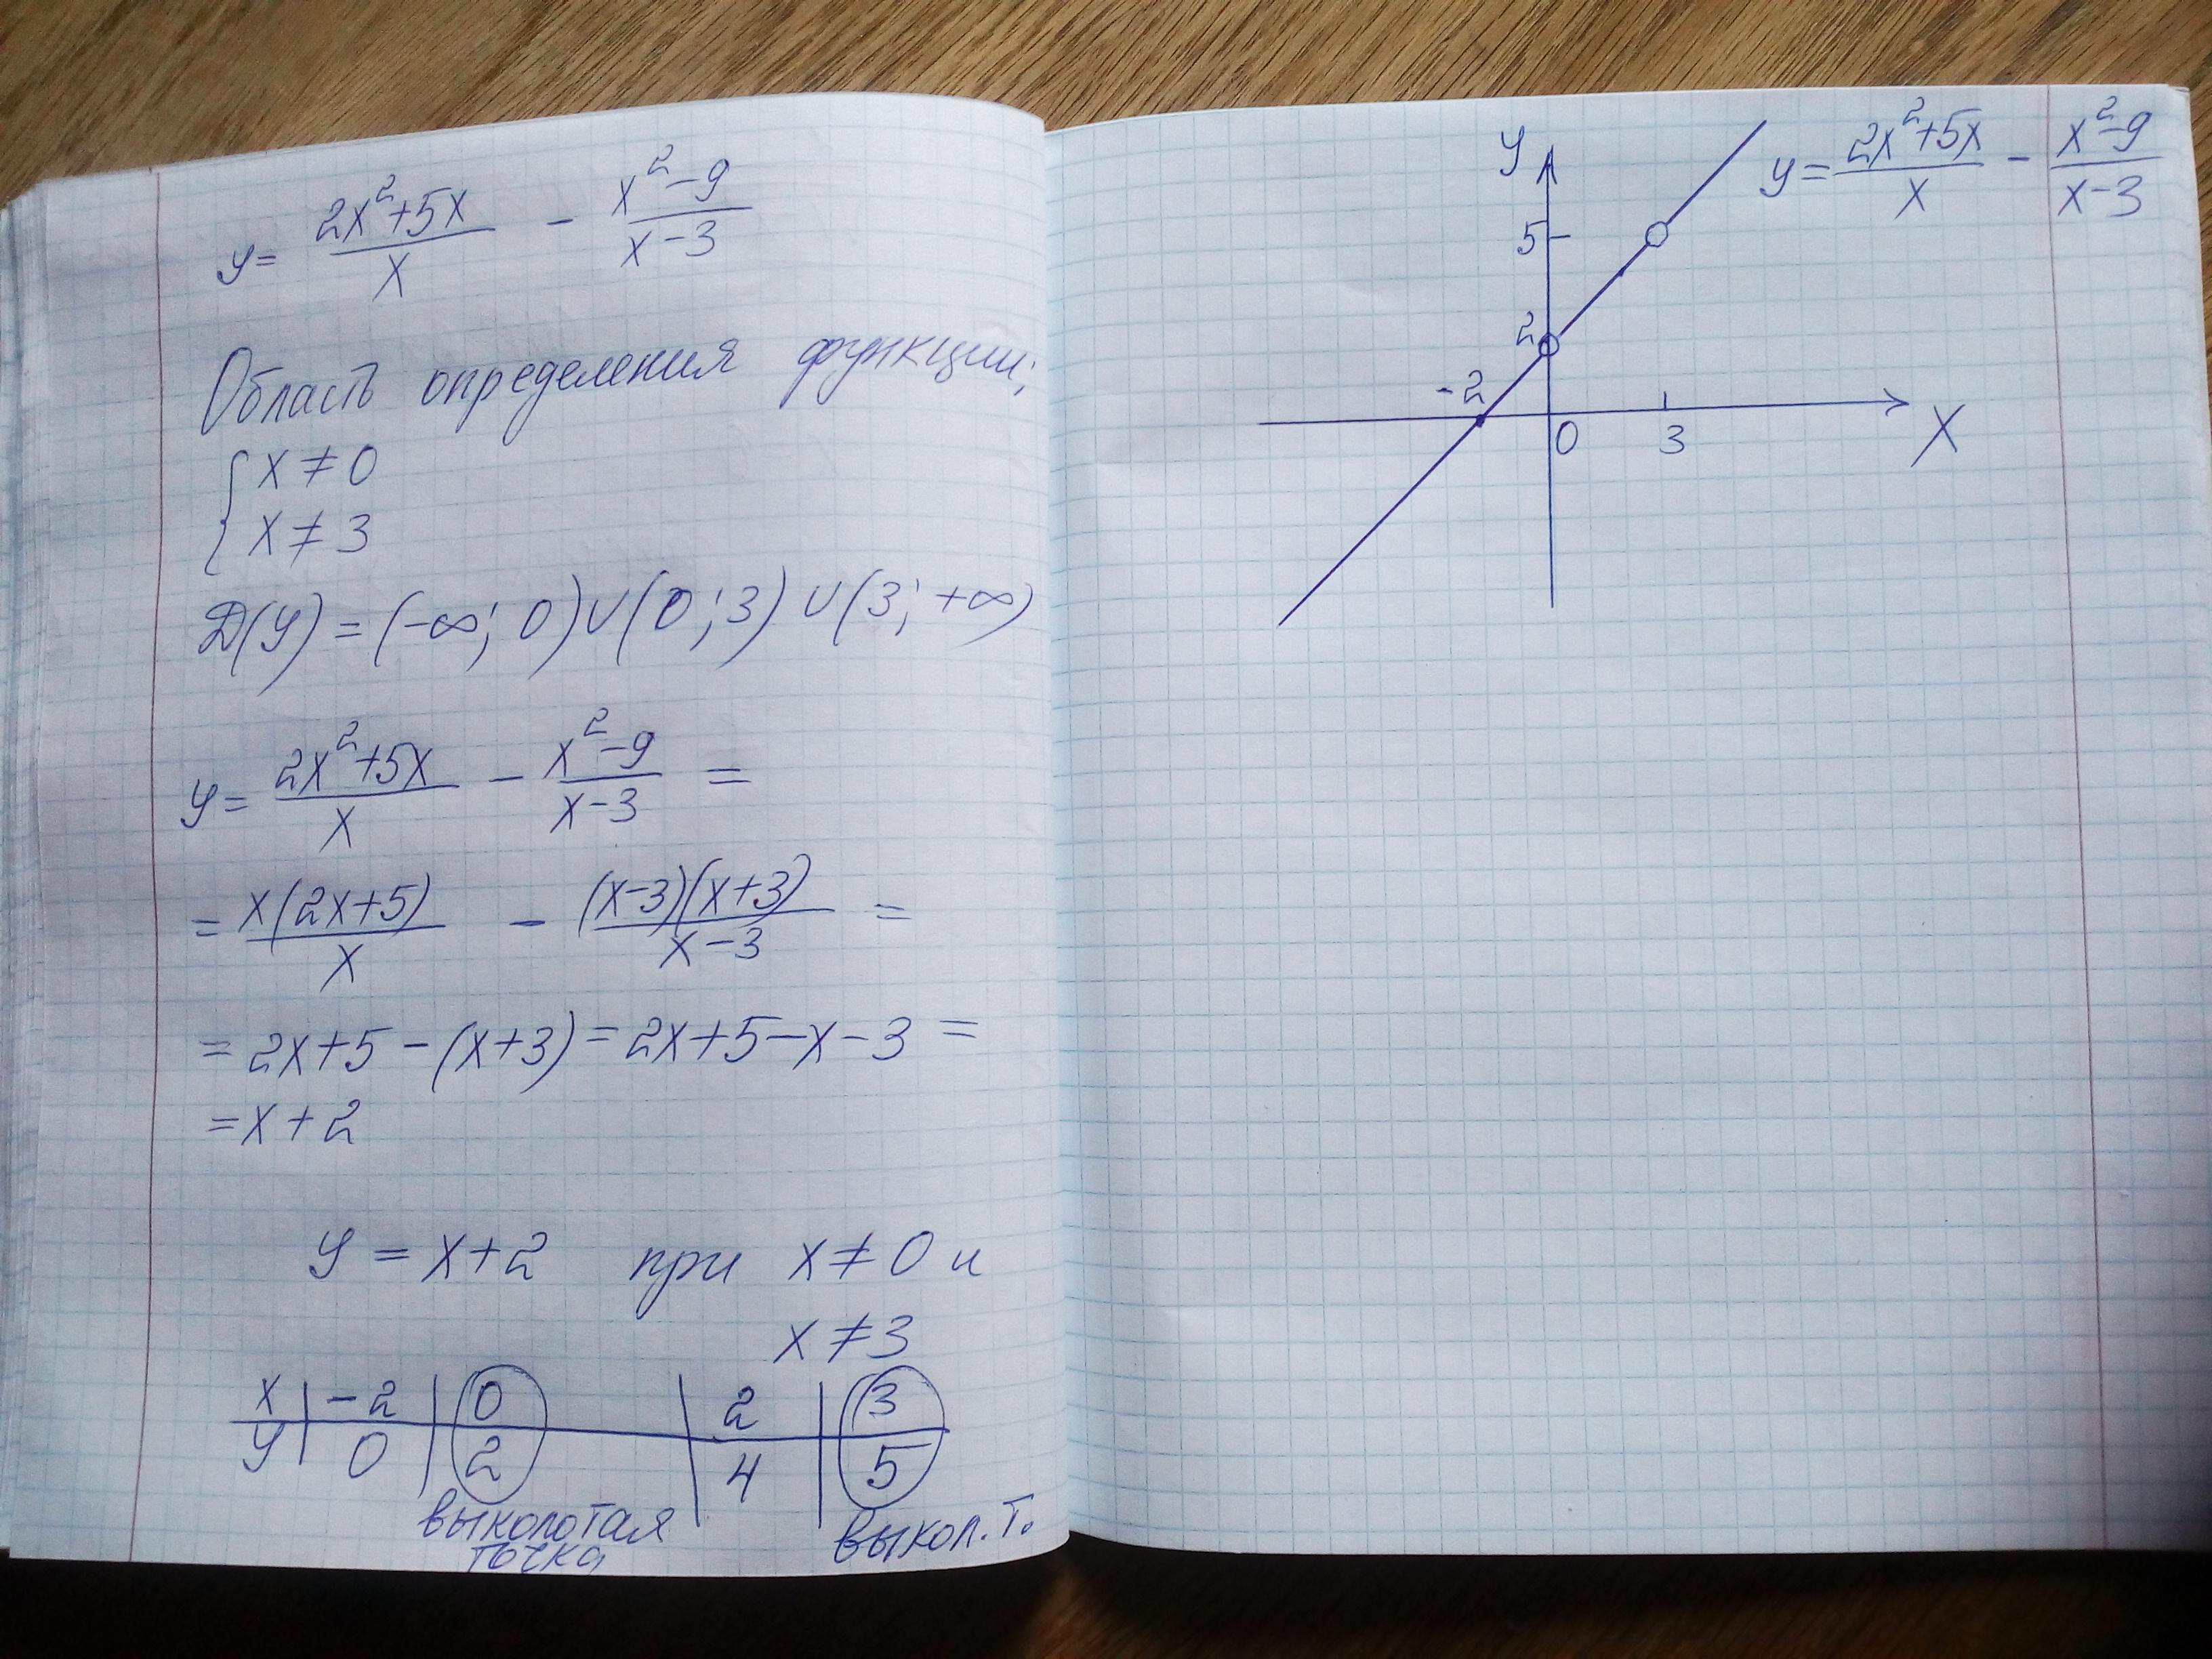 y = (2x²+5x)/x − (x²−9)/(x−3)
Область определения функции;
{ x ≠ 0
x ≠ 3
D(y) = (−∞; 0)∪(0; 3)∪(3; +∞)
y = (2x²+5x)/x − (x²−9)/(x−3) =
= x(2x+5)/x − (x−3)(x+3)/(x−3) =
= 2x+5−(x+3) = 2x+5−x−3 =
= x+2
y = x+2 при x ≠ 0 и
x ≠ 3
x | −2 | 0 | 2 | 3
y | 0 | 2 | 4 | 5
выколотая выкол. т.
точка
y
y = (2x²+5x)/x − (x²−9)/(x−3)
5
2
-2
0 3 X